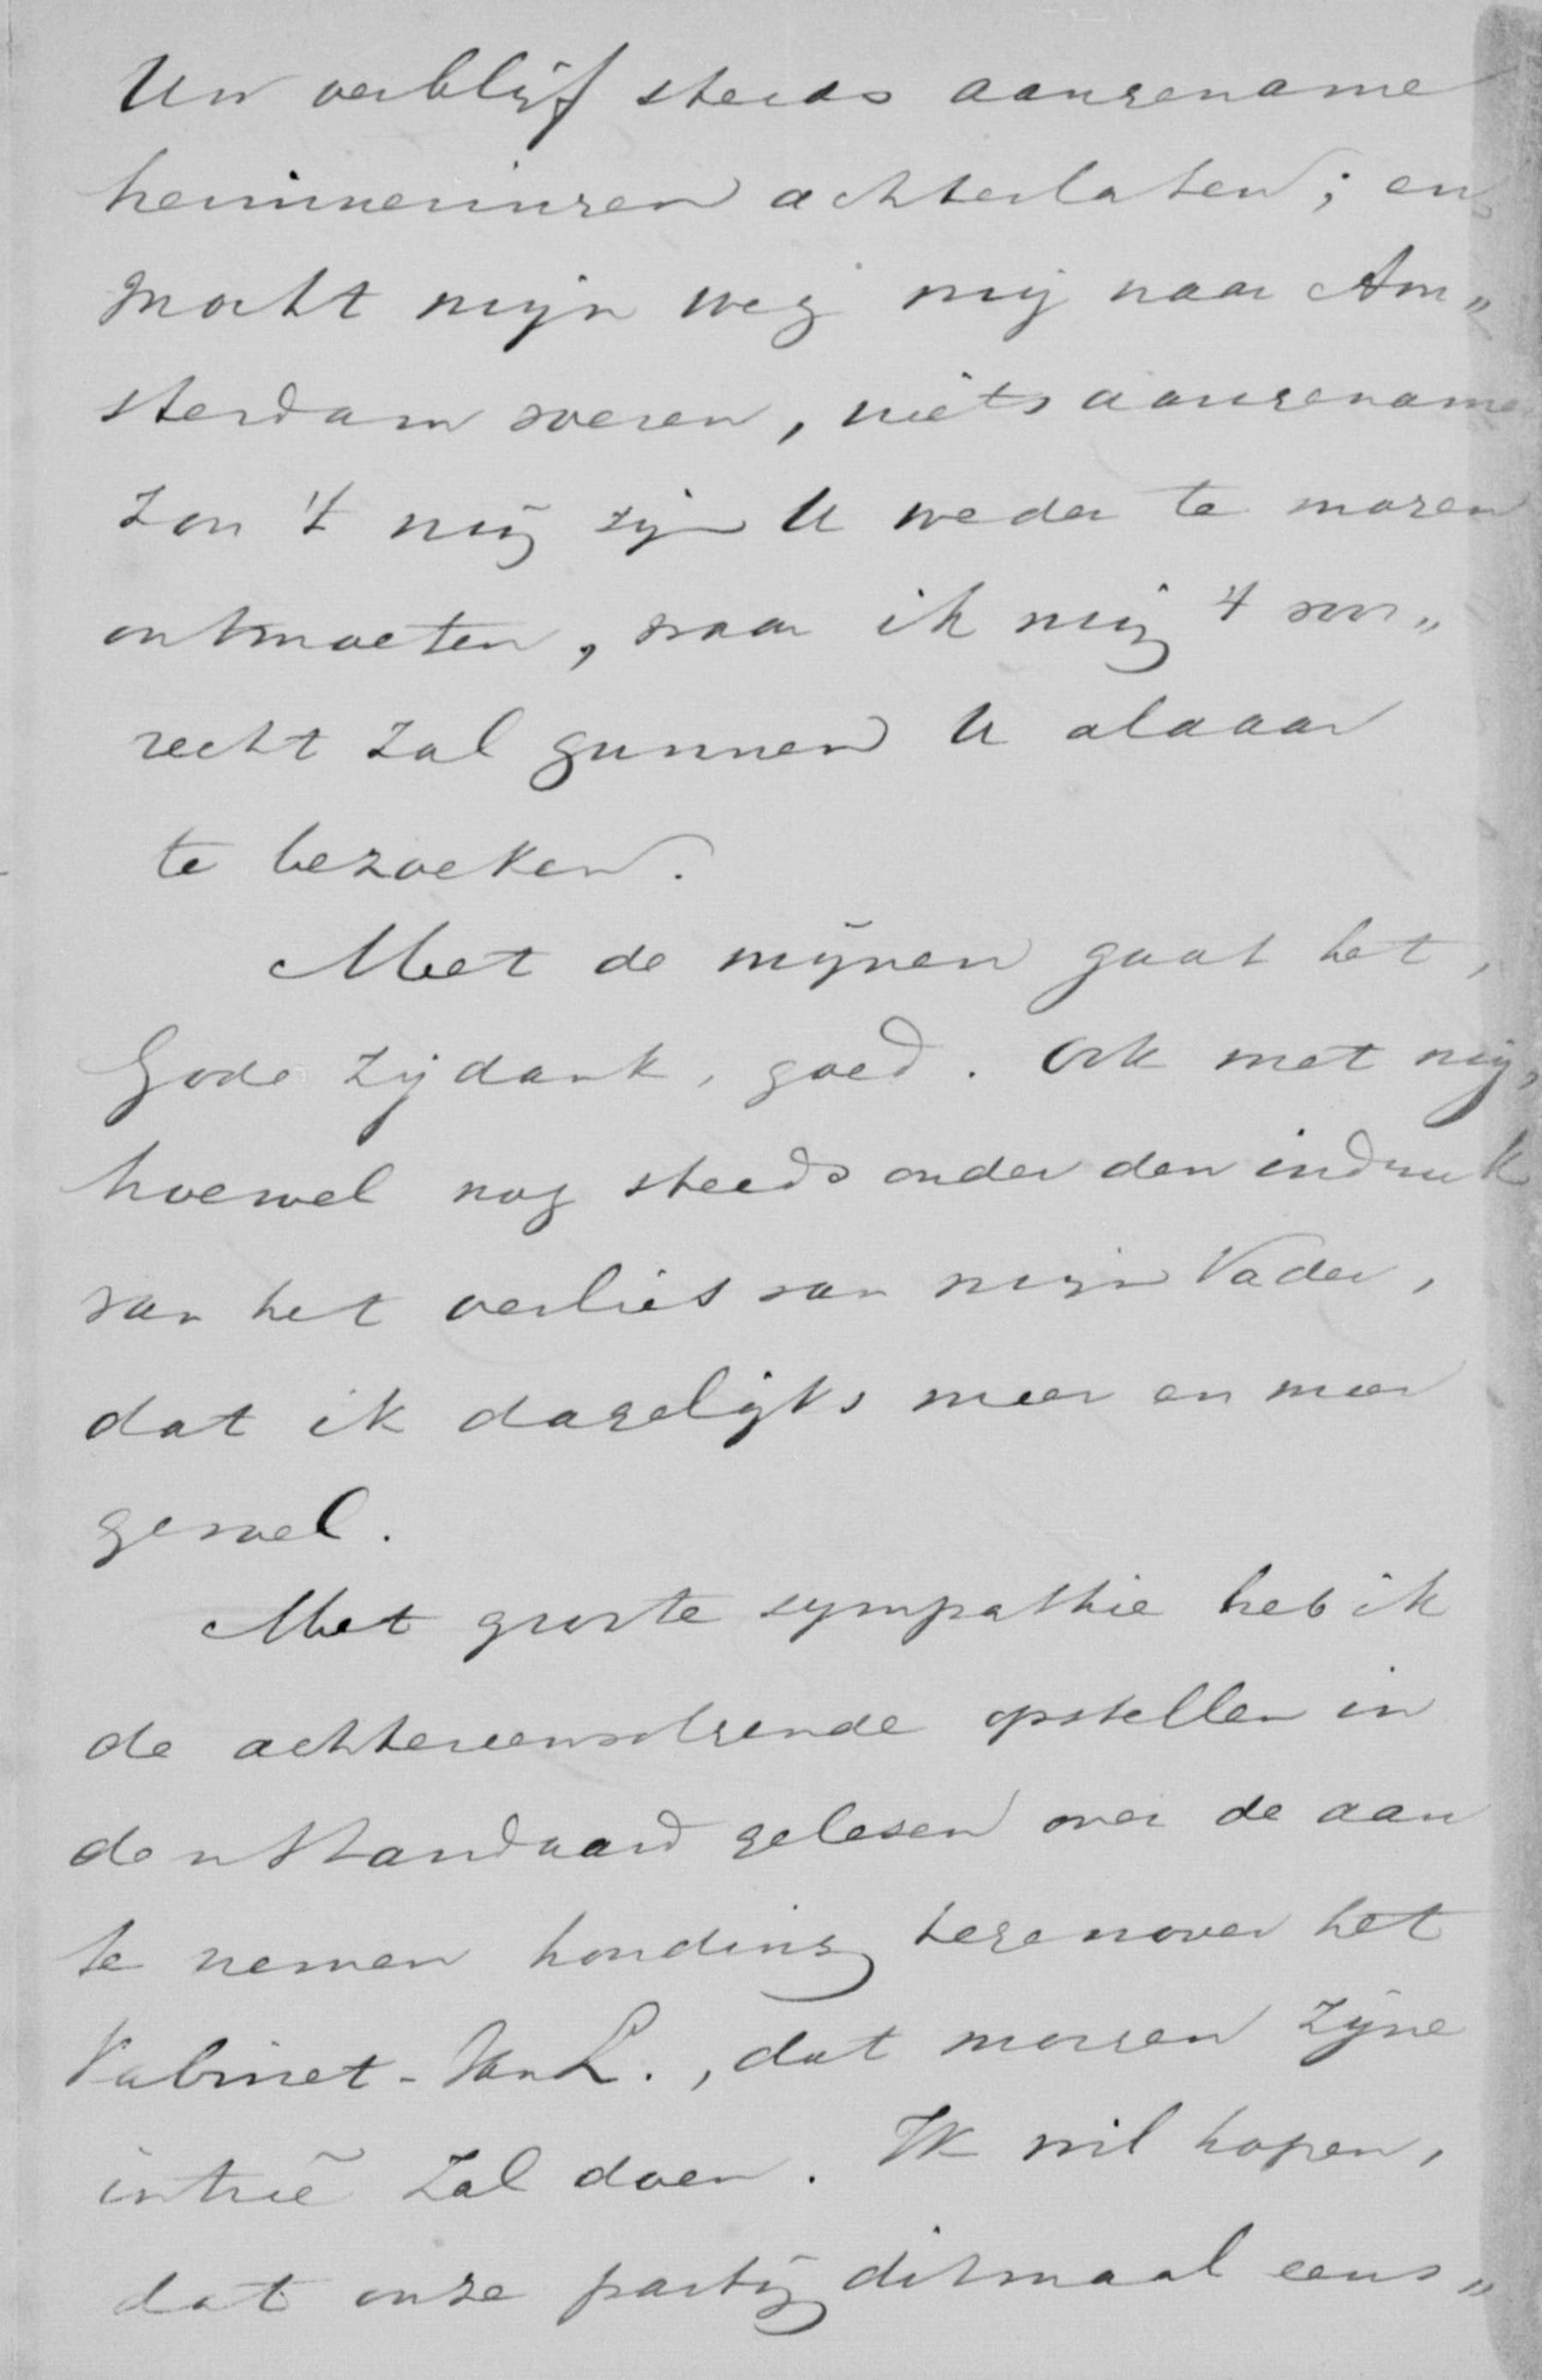 Uw verblijf steeds aangename
herinneringen achterlaten; en
mocht mijn weg mij naar Am„
sterdam voeren, niets aangenamer
zou 't mij zijn U weder te mogen
ontmoeten, waar ik mij 't voor„
recht zal gunnen U aldaar
te bezoeken.
Met de mijnen gaat het,
Gode zij dank, goed. Ook met mij,
hoewel nog steeds onder den indruk
van het verlies van mijn Vader,
dat ik dagelijks meer en meer
gevoel.
Met groote sympathie heb ik
de achtereenvolgende opstellen in
den Standaard gelesen over de aan
te nemen houding tegenover het
Kabinet-Van L., dat morgen zijne
intreê zal doen. Ik wil hopen,
dat onze partij ditmaal eens„